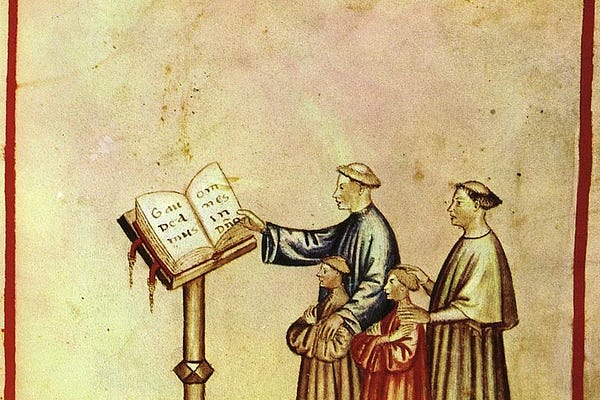 Gau
ded
mus
om
nes
in
dño